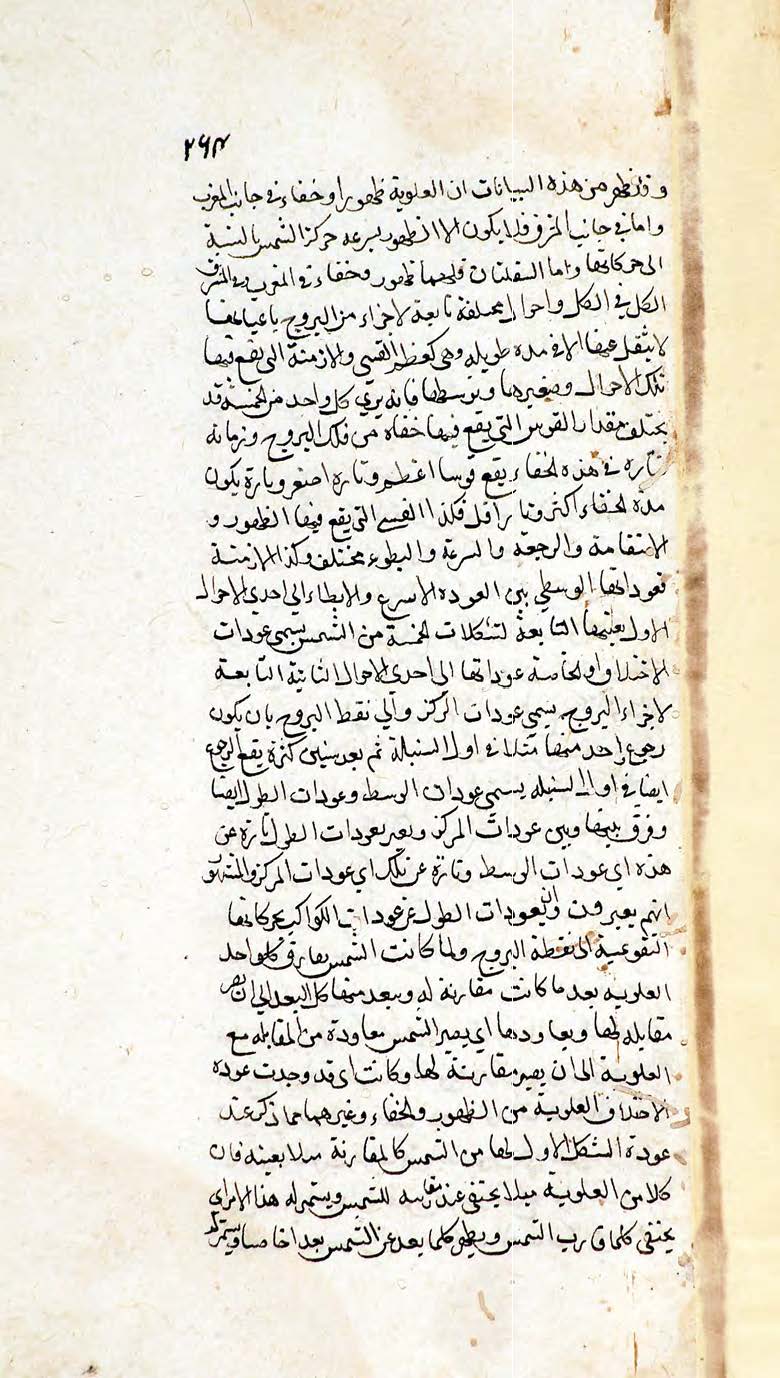 ٢٦٣
وقد ظهر من هذه البيانات ان العلوية ظهورا وخفاء في جانب المغرب
واما في جانب المشرق فلا يكون الا الظهور بسرعة حركة الشمس بالنسبة
الى حركاتها واما السفلتان فلهما ظهور وخفاء في المغرب وفي المشرق
الكل في الكل واحوال مختلفة تابعة لاجزاء من البروج باعيانها
لا ينتقل عنها الا في مدة طويلة وهي كعظم القسي والازمنة التي يقع فيها
تلك الاحوال وصغيرها وتوسطها فانه يرى كل واحد من الخمسة قد
يختلف مقدار القوس التي يقع فيها خفاه من فلك البروج وزمانه
فتارة في هذه الخفاء يقع قوسا اعظم وتارة اصغر وتارة يكون
مدة الخفاء اكثر وتارة اقل فكذا القسي التي يقع فيها الظهور و
الاستقامة والرجعة والسرعة والبطوء مختلف وكذا الازمنة
فعوداتها الوسطى بين العودة الاسرع والابطاء الى احدى الاحوال
الاول بعينها التابعة لتشكلات الخمسة من الشمس يسمى عودات
الاختلاف او الخاصة عوداتها الى احدى الاحوال الثانية التابعة
لاجزاء البروج يسمى عودات المركز والى نقط البروج بان يكون
رجوع واحد منها مثلا في اول السنبلة ثم بعد سنين كثرة يقع الرجوع
ايضا في اول السنبلة يسمى عودات الوسط وعودات الطول ايضا
وفرق بينها وبين عودات المركز ويعبر بعودات الطول تارة عن
هذه اي عودات الوسط وتارة عن تلك اي عودات المركز والمشهور
انهم يعبرون بعودات الطول عن عودات الكواكب بحركاتها
التقويمية الى نقطة البروج ولما كانت الشمس يفارق كل واحد
العلوية بعد ما كانت مقارنة له ويبعد منها كل البعد الى ان يصير
مقابلة لها ويعاودها اي يصير الشمس معاودة من المقابلة مع
العلوية الى ان يصير مقارنة لها وكانت اي قد وجدت عودة
الاختلاف العلوية من الظهور والخفاء وغيرهما مما ذكر عند
عودة الشكل الاول لها من الشمس كالمقارنة مثلا بعينه فان
كلا من العلوية مثلا يختفي عند مقارنته للشمس ويستمر له هذا الامر اي
يختفي كلما قارب الشمس ويظهر كلما بعد عن الشمس بعدا خاصا ويستمر